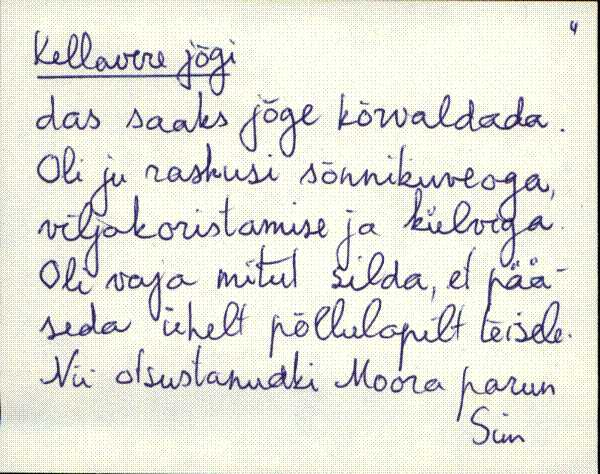 4
Kellavere jõgi
das saaks jõge kõrvaldada.
Oli ju raskusi sõnnikuveoga,
viljakoristamise ja külviga.
Oli vaja mitut silda, et pää-
seda ühelt põllulapilt teisele.
Nii otsustanudki Moora parun
Siin